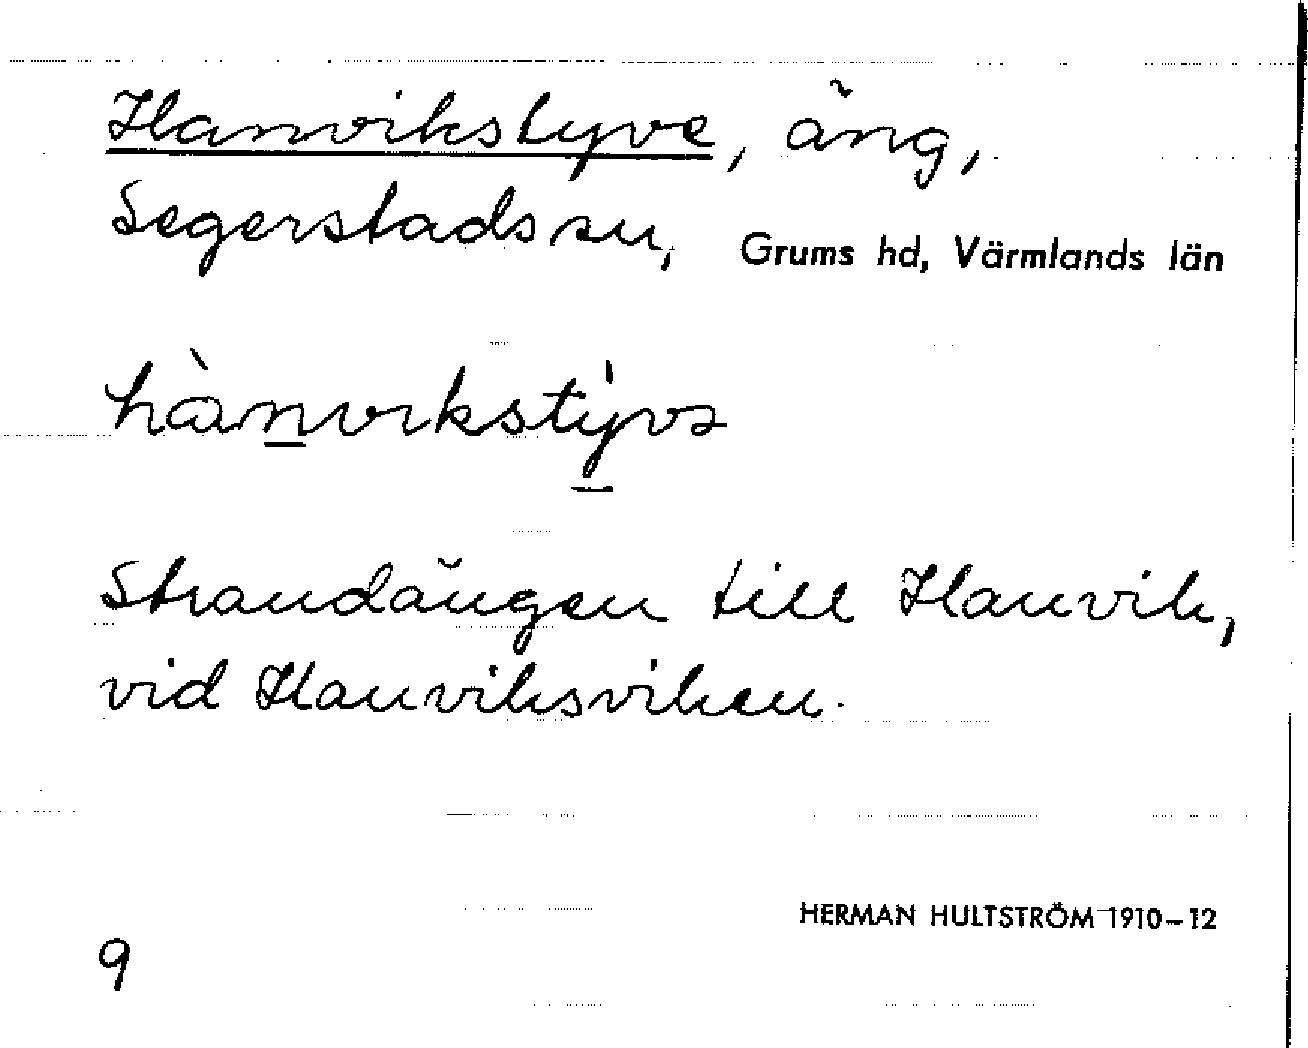 Hanvikstyve, äng,
Segerstads sn, Grums hd, Värmlands län
hànviksty̍və
Strandängen till Hanvik,
vid Hanviksviken.
HERMAN HULTSTRÖM 1910–12
9